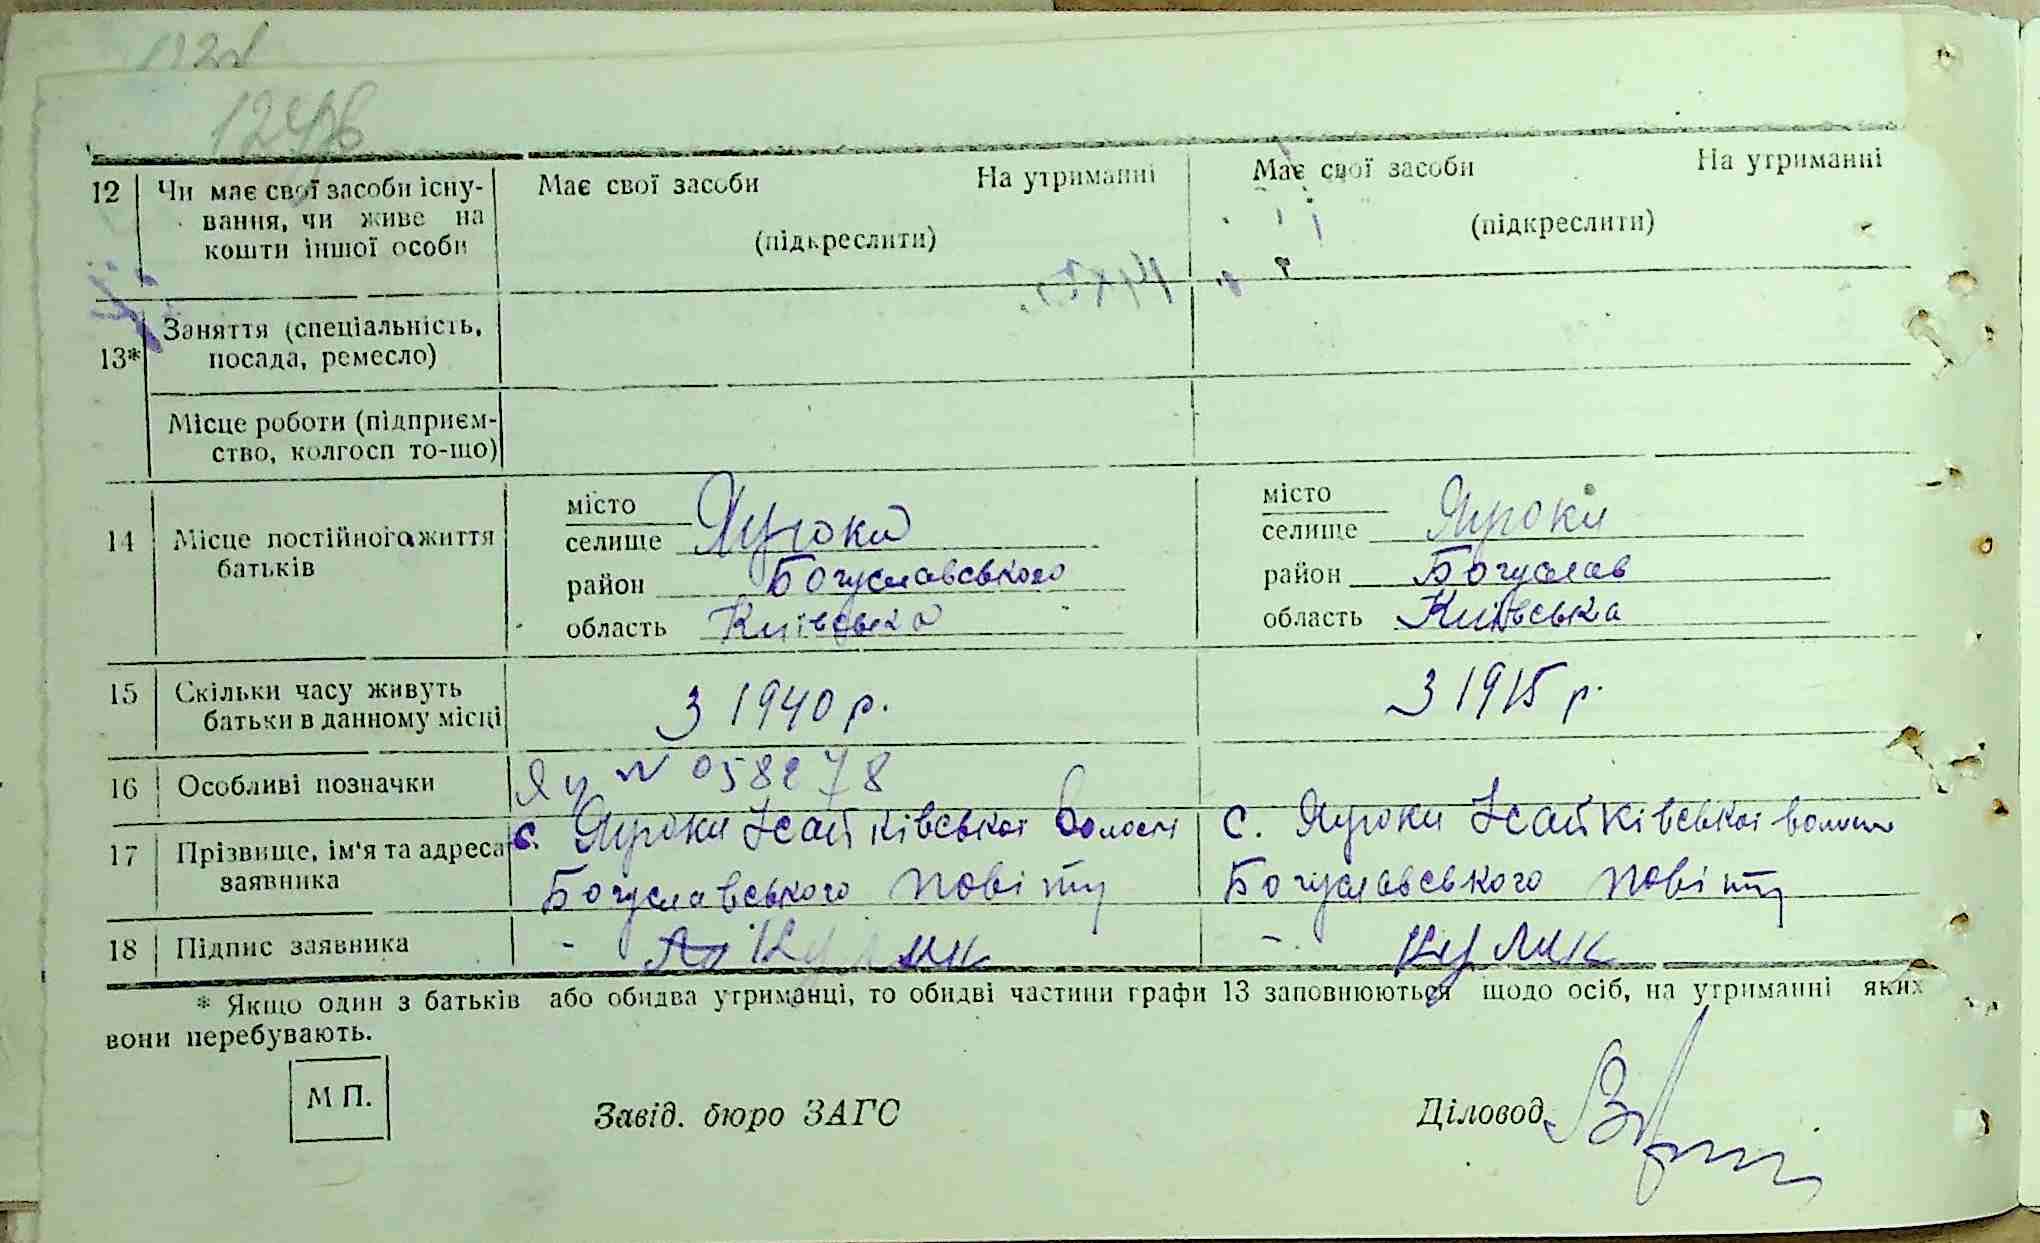 12 Чи має свої засоби існу- Має свої засоби На утриманні Має свої засоби На утриманні
вання, чи живе на
кошти іншої особи (підкреслити) (підкреслити)
13* Заняття (спеціальність,
посада, ремесло)
Місце роботи (підприєм-
ство, колгосп то-що)
14 Місце постійного життя батьків
місто
селище Яцюки
район Богуславського
область Київська
місто
селище Яцюки
район Богуслав
область Київська
15 Скільки часу живуть
батьки в данному місці З 1940 р. З 1915 р.
16 Особливі позначки № 058278
17 Прізвище, ім'я та адреса
заявника
с. Яцюки Ісайківської волості
Богуславського повіту
с. Яцюки Ісайківської волости
Богуславського повіту
18 Підпис заявника - - Кулик
* Якщо один з батьків або обидва утриманці, то обидві частини графи 13 заповнюються щодо осіб, на утриманні яких
вони перебувають.
М П.
Завід. бюро ЗАГС Діловод